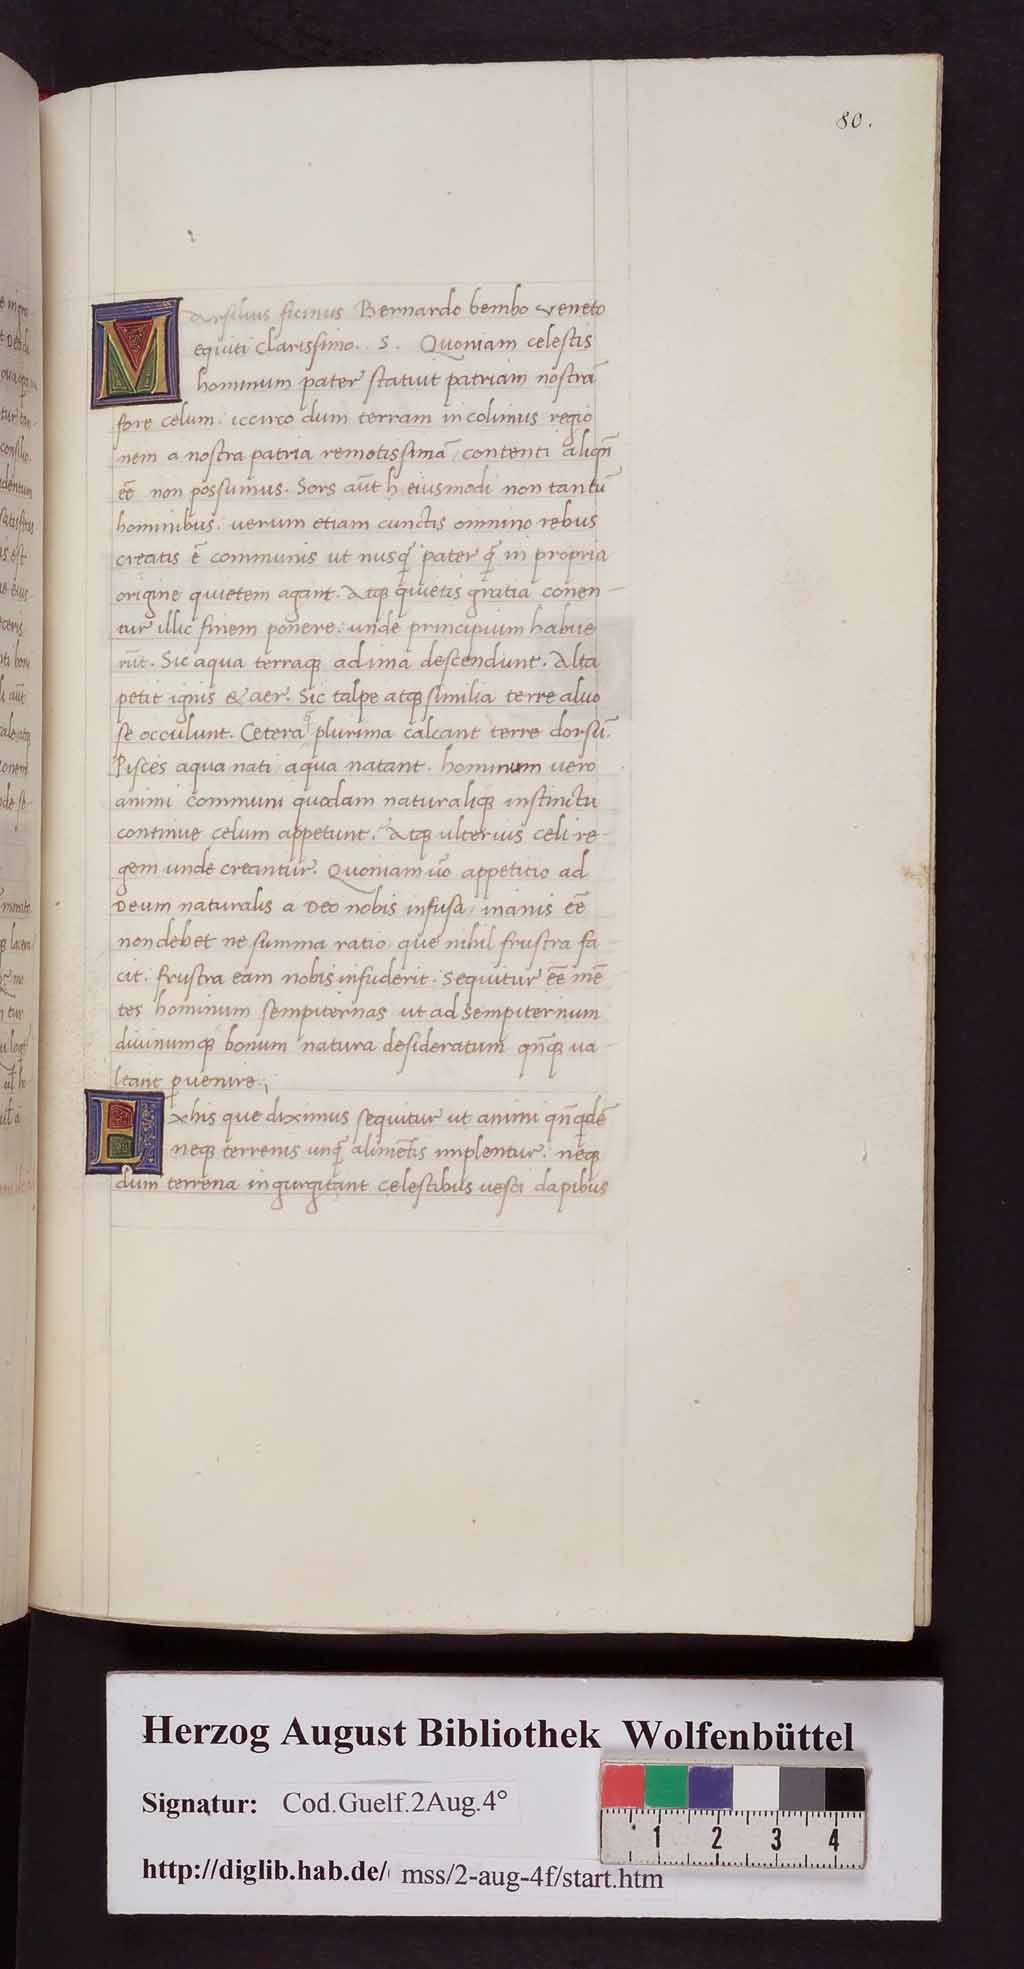 80.
Marsilius ficinus Bernardo bembo veneto
equiti clarissimo. S. Quoniam celestis
hominum pater statuit patriam nostrā
fore celum: iccirco dum terram incolimus regio
nem a nostra patria remotissimā contenti aliqñ
eē non possumus. Sors aūt h eiusmodi non tantū
hominibus: verum etiam cunctis omnino rebus
creatis ē communis ut nusq̄ pater q̄ in propria
origine quietem agant. Atq quietis gratia conen-
tur illic finem ponere: unde principium habue
rūt. Sic aqua terraq ad ima descendunt. Alta
petit ignis & aer. Sic talpe atq similia terre aluo
se occulunt. Cetera plurima calcant terre dorsū.
Pisces aqua nati aqua natant. hominum vero
animi communi quodam naturaliq instinctu
continue celum appetunt. Atq ulterius celi re-
gem unde creantur. Quoniam ūo appetitio ad
Deum naturalis a Deo nobis infusa inanis eē
non debet ne summa ratio que nihil frustra fa
cit. Frustra eam nobis infuderit. Sequitur eē mē
tes hominum sempiternas ut ad sempiternum
divinumq bonum natura desideratum qñq va
leant pvenire;
Ex his que diximus sequitur ut animi qñqdē
neq terrenis unq̄ alimētis implentur: neq
dum terrena ingurgitant celestibus vesci dapibus
Herzog August Bibliothek Wolfenbüttel
Signatur: Cod.Guelf.2Aug.4°
http://diglib.hab.de/ mss/2-aug-4f/start.htm
1 2 3 4